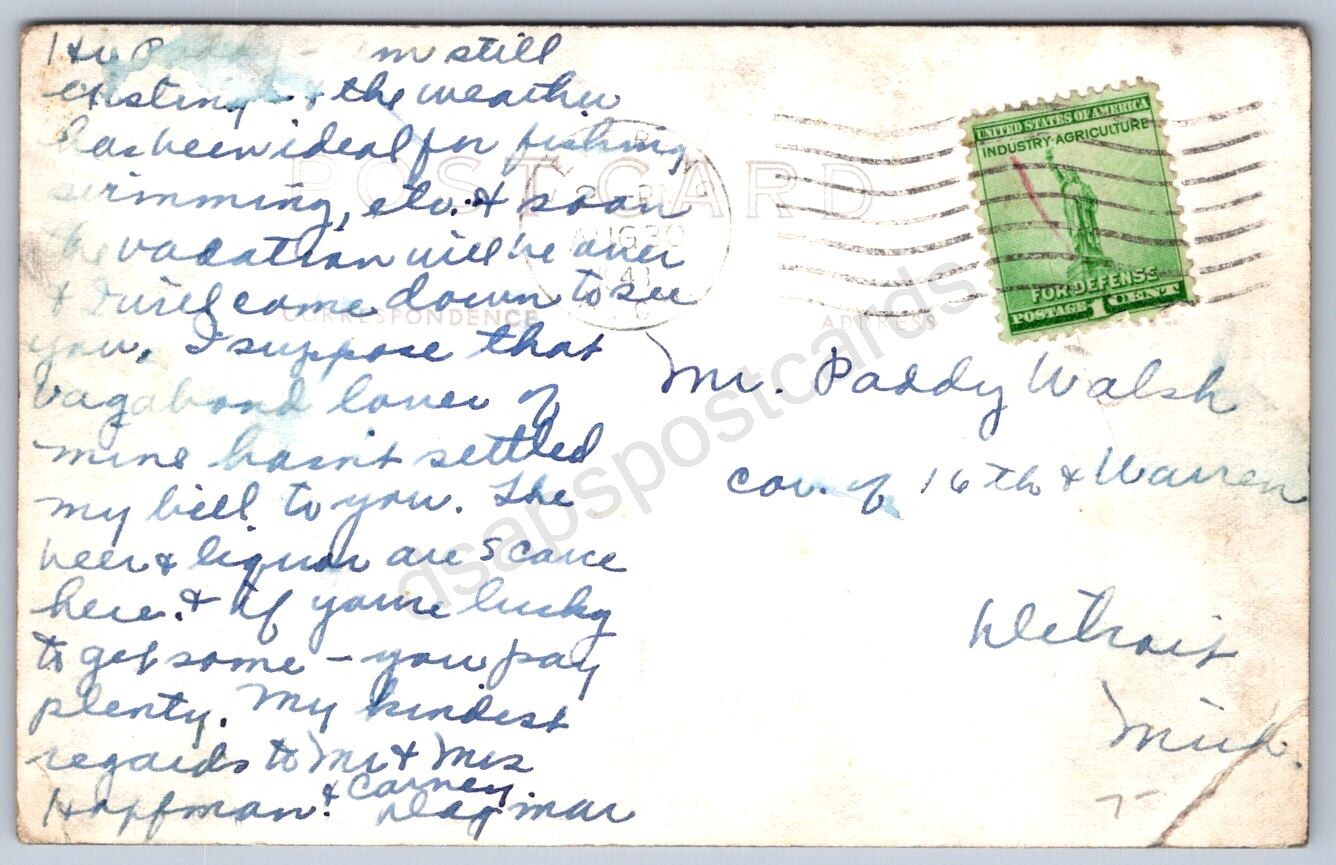 Hi Paddy - Am still
existing & the weather
has been ideal for fishing
swimming, etc. & soon
the vacation will be over
& I will come down to see
you. I suppose that
vagabond lover of
mine hasn't settled
my bill to you. The
beer & liquor are scarce
here. & if you're lucky
to get some - you pay
plenty. My kindest
regards to Mr & Mrs
Hoffman. & Carney
Dagmar
POST CARD
AUG 30
1941
CORRESPONDENCE
ADDRESS
UNITED STATES OF AMERICA
INDUSTRY-AGRICULTURE
FOR DEFENSE
POSTAGE 1 CENT
Mr. Paddy Walsh
cor. of 16th & Warren
Detroit
Mich.
qsapspostcards